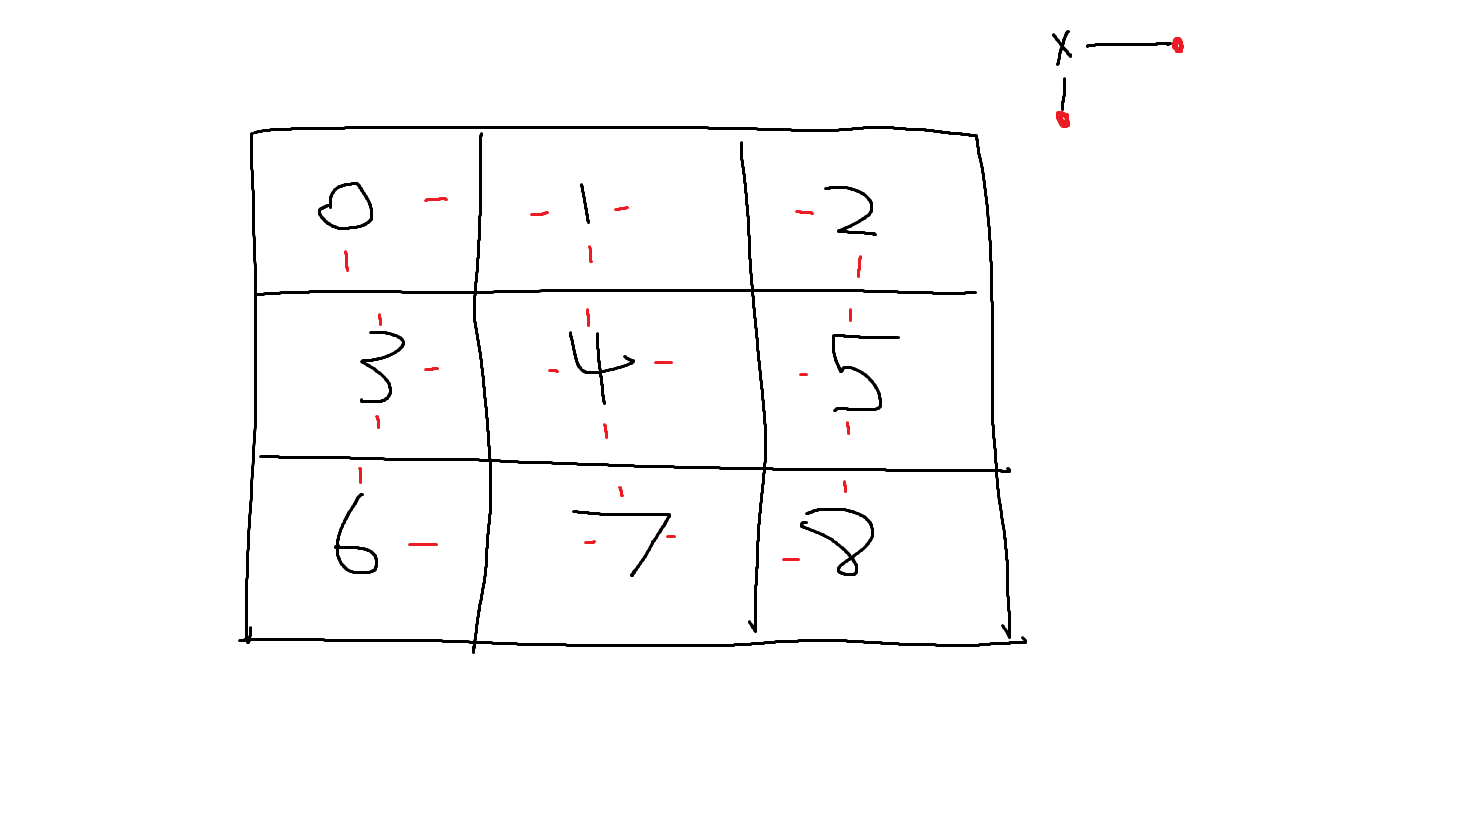 X
0 1 2
3 4 5
6 7 8